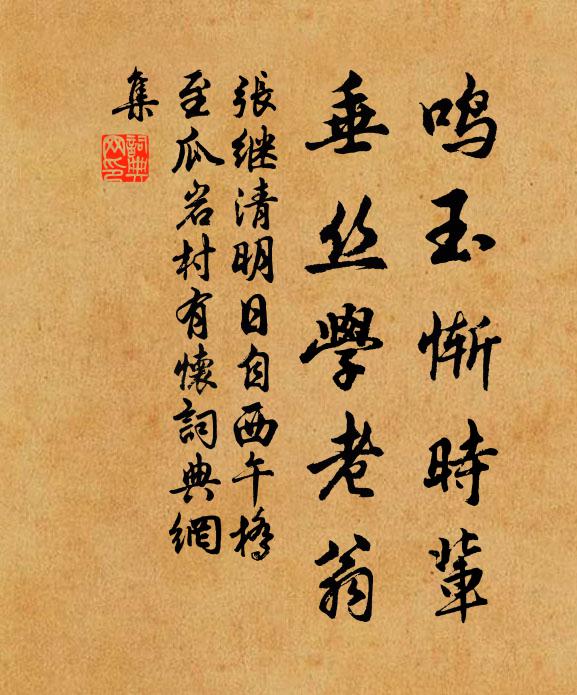 鸣玉惭時輩
垂丝學老翁
張继清明日自西午橋
至瓜岩村有懷詞典網
集
詞典
网印